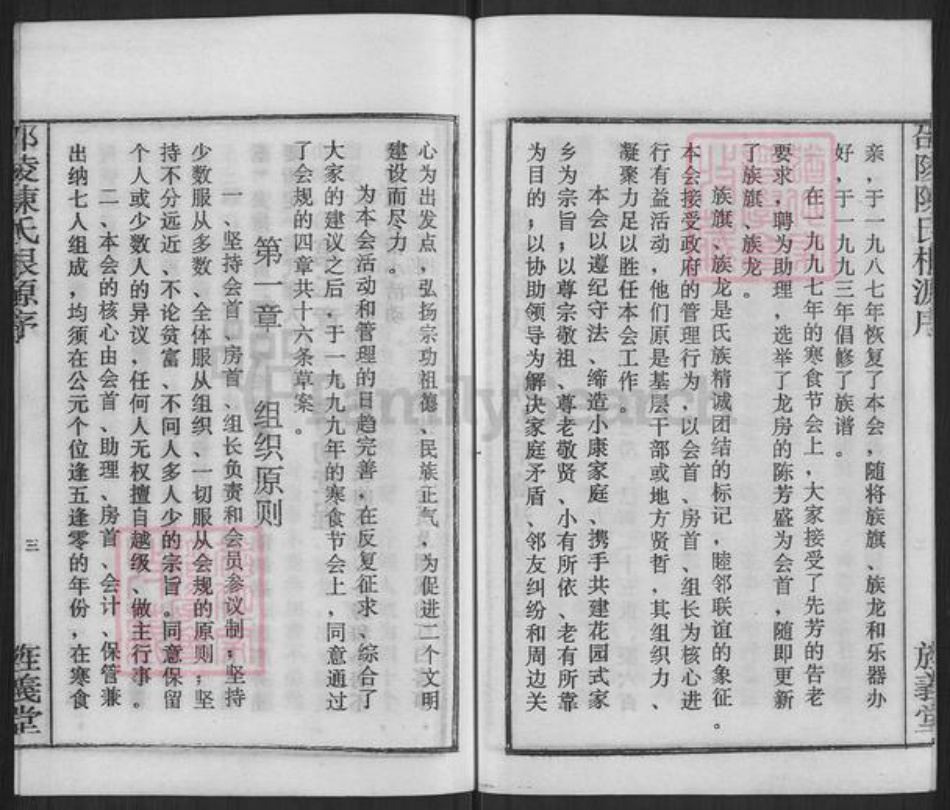 亲,于一九八七年恢复了本会,随将族旗、族龙和乐器办
好,于一九九三年倡修了族谱。
在一九九七年的寒食节会上,大家接受了先芳的告老
要求,聘为助理,选举了龙房的陈芳盛为会首,随即更新
了族旗、族龙。
族旗、族龙是氏族精诚团结的标记,睦邻联谊的象征。
本会接受政府的管理行为,以会首、房首、组长为核心进
行有益活动,他们原是基层干部或地方贤哲,其组织力、
凝聚力足以胜任本会工作。
本会以遵纪守法、缔造小康家庭、携手共建花园式家
乡为宗旨;以尊宗敬祖、尊老敬贤、小有所依、老有所靠
为目的;以协助领导为解决家庭矛盾、邻友纠纷和周边关
心为出发点,弘扬宗功祖德、民族正气,为促进二个文明
建设而尽力。
为本会活动和管理的日趋完善,在反复征求、综合了
大家的建议之后,于一九九九年的寒食节会上,同意通过
了会规的四章共十六条草案。
第一章 组织原则
一、坚持会首、房首、组长负责和会员参议制;坚持
少数服从多数、全体服从组织、一切服从会规的原则;坚
持不分远近、不论贫富、不问人多人少的宗旨。同意保留
个人或少数人的异议,任何人无权擅自越级、做主行事。
二、本会的核心由会首、助理、房首、会计、保管兼
出纳七人组成,均须在公元个位逢五逢零的年份,在寒食
三
FamilySearch